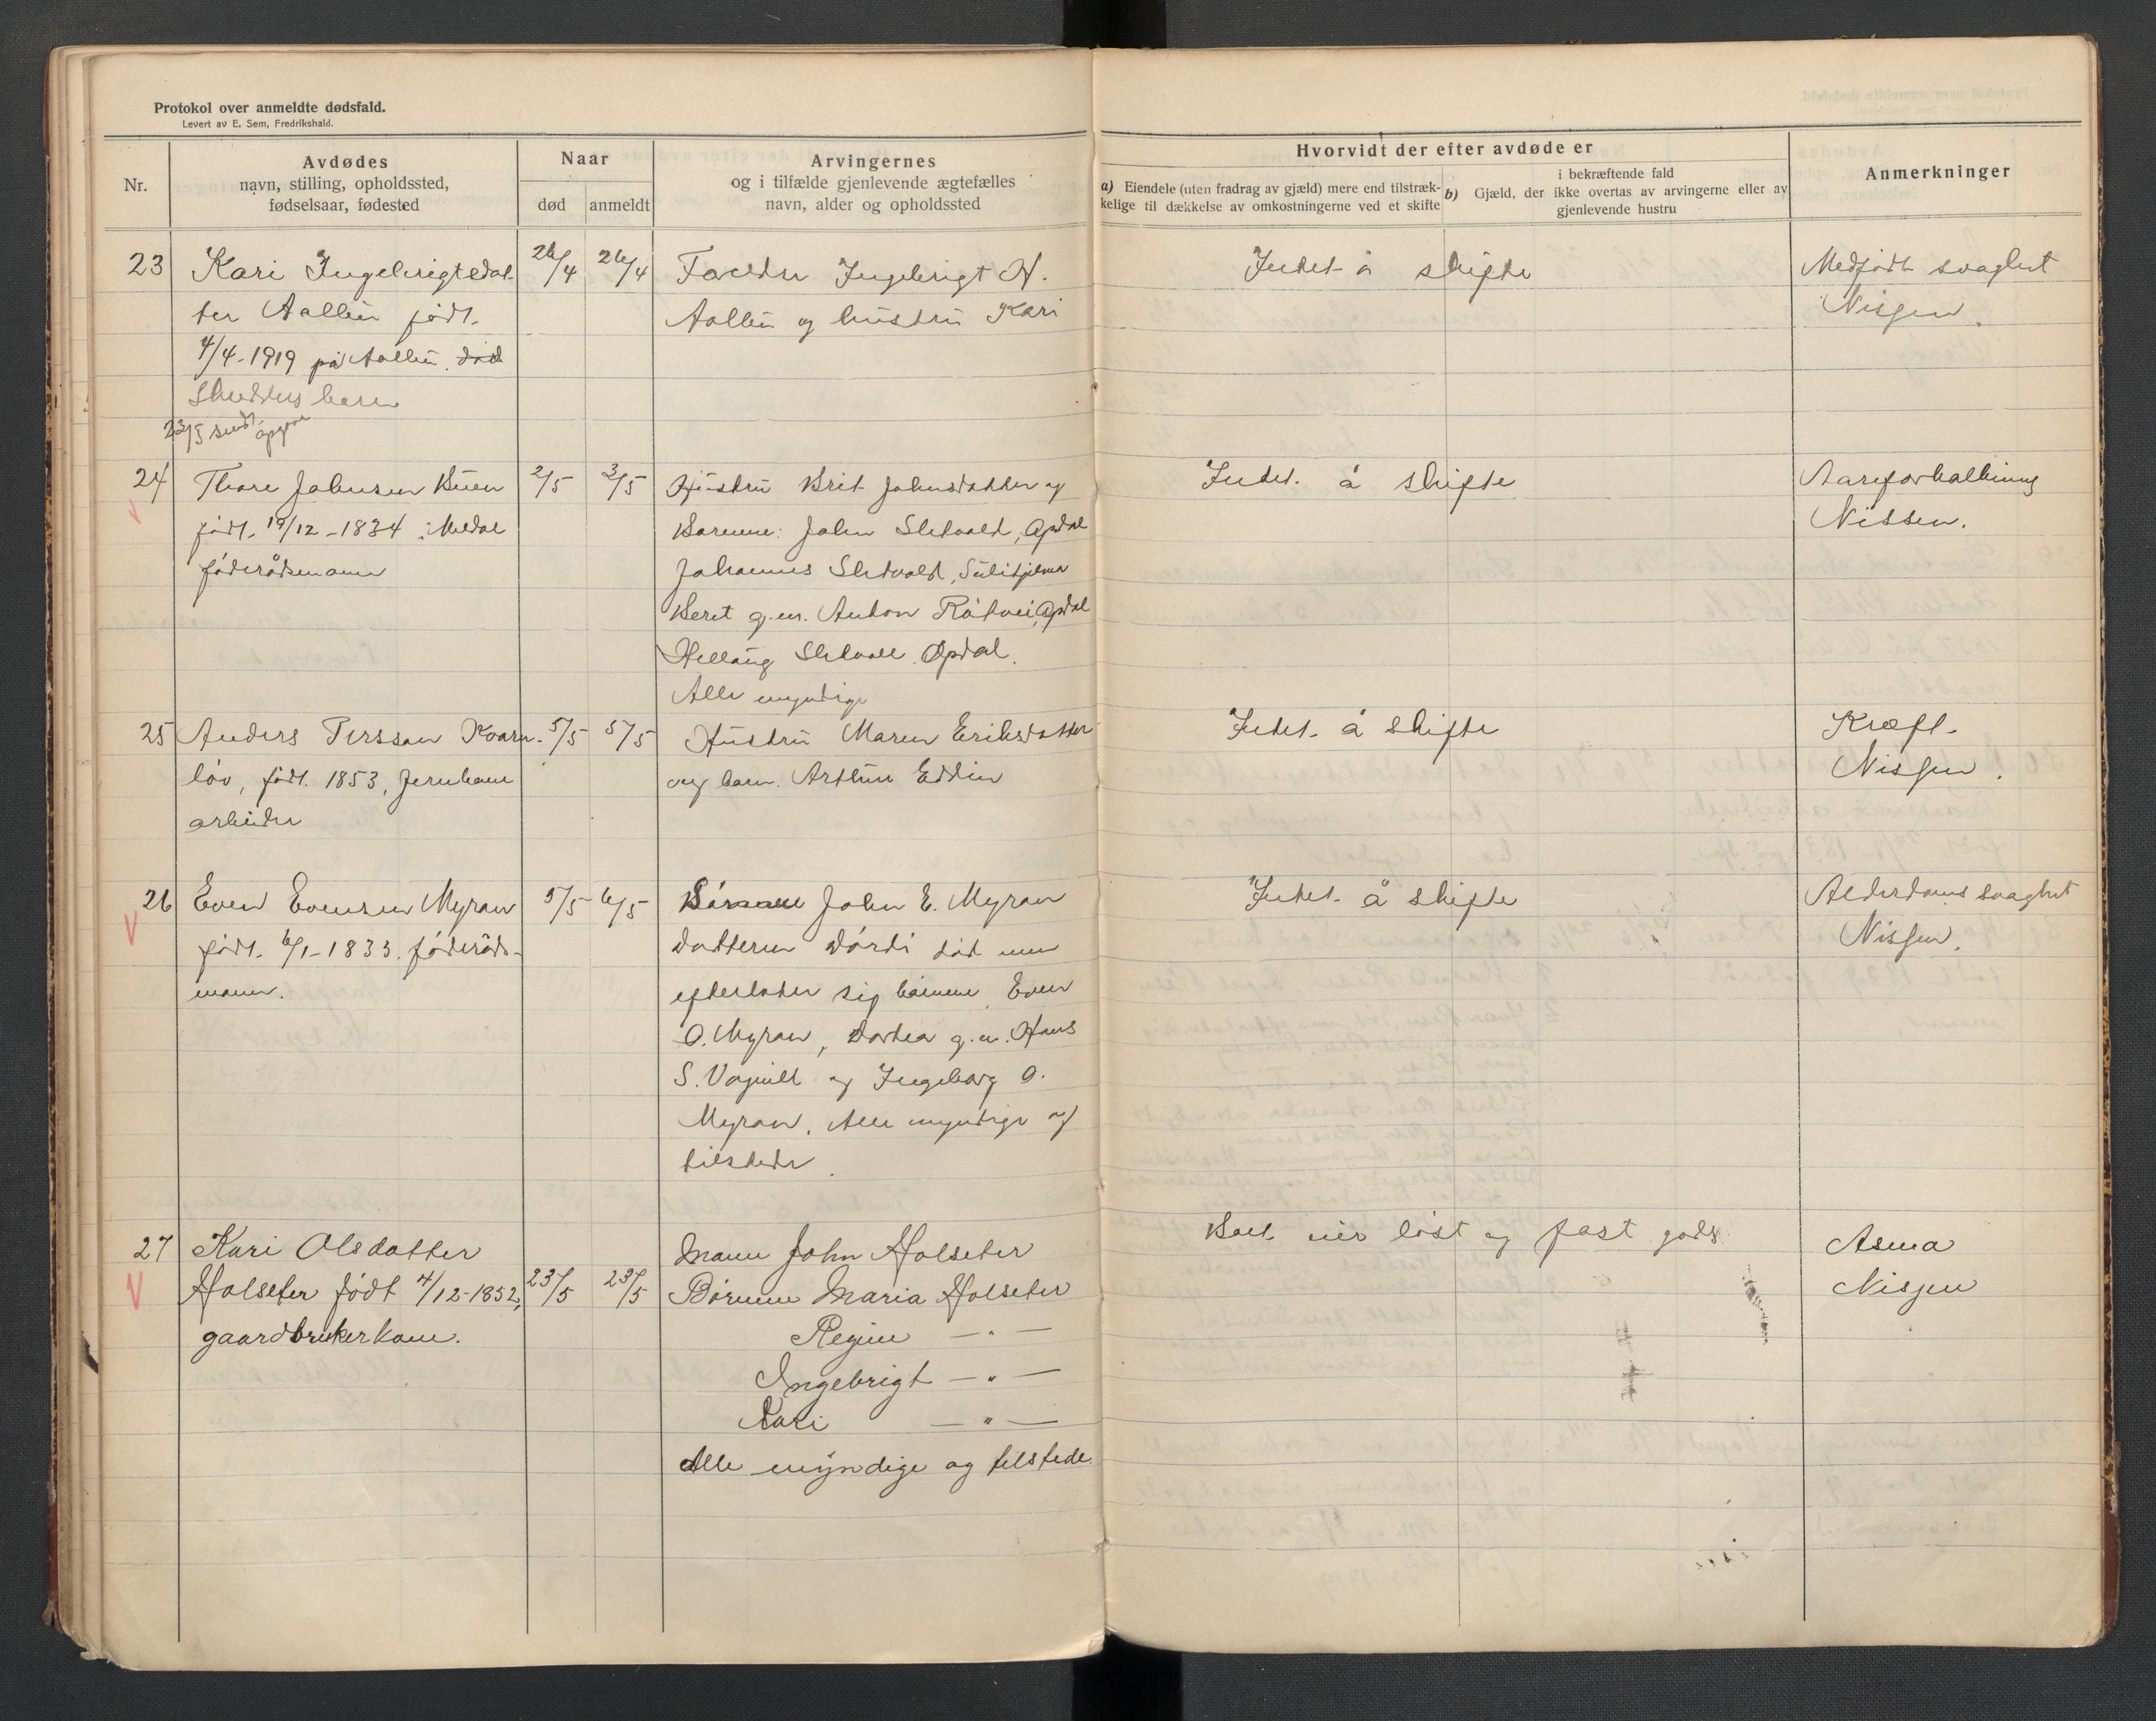 Protokol over anmeldte dødsfald.
Levert av E. Sem, Fredrikshald.
Nr.
Avdødes
navn, stilling, opholdssted,
fødselsaar, fødested
Naar
død
anmeldt
Arvingernes
og i tilfælde gjenlevende ægtefælles
navn, alder og opholdssted
Hvorvidt der efter avdøde er
a) Eiendele (uten fradrag av gjæld) mere end tilstræk-
kelige til dækkelse av omkostningerne ved et skifte
i bekræftende fald
b) Gjæld, der ikke overtas av arvingerne eller av
gjenlevende hustru
Anmerkninger
23 Kari Ingebrigtsdat- 26/4 26/4
ter Aalbu født
4/4-1919 på Aalbu. død
23/5 sendt opgave
Foreldre Ingebrigt H.
Aalbu og hustru Kari
Intet å skifte
Medfødt svaghet
Nissen.
24 Thore Johnsen 2/5 3/5
født 19/12-1834 i Meldal
føderådsmann
Hustru Brit Johnsdatter og
Barnene: John Sletvold, Opdal
Johannes Sletvold, Sulitjelma
Beret g.m. Anton Opdal
Sletvold Opdal.
Alle myndige
Intet å skifte
Aareforkalkning
Nissen.
25 Anders Persson Kvarn- 5/5 5/5
löv, født 1853, Jernbane
arbeider
Hustru Maren Eriksdatter
og barn Arthur Eddin
Intet å skifte
Kræft.
Nissen.
26 Even Evensen Myran 5/5 6/5
født 6/1-1833. føderåds-
mann.
Barnene John E. Myran
datteren Dordi død men
efterlater sig barnene Even
O. Myran, Dortea g.m. Hans
S. Vognill og Ingeborg O.
Myran. Alle myndige og
tilstede.
Intet å skifte
Alderdomssvaghet
Nissen.
27 Kari Olsdatter
Holseter født 4/12-1852, 23/5 23/5
gaardbrukerkone.
Mann John Holseter
Børnene Maria Holseter
Regine — " —
Ingebrigt — " —
Kari — " —
Alle myndige og tilstede.
Boet eier løst og fast gods.
Asma
Nissen